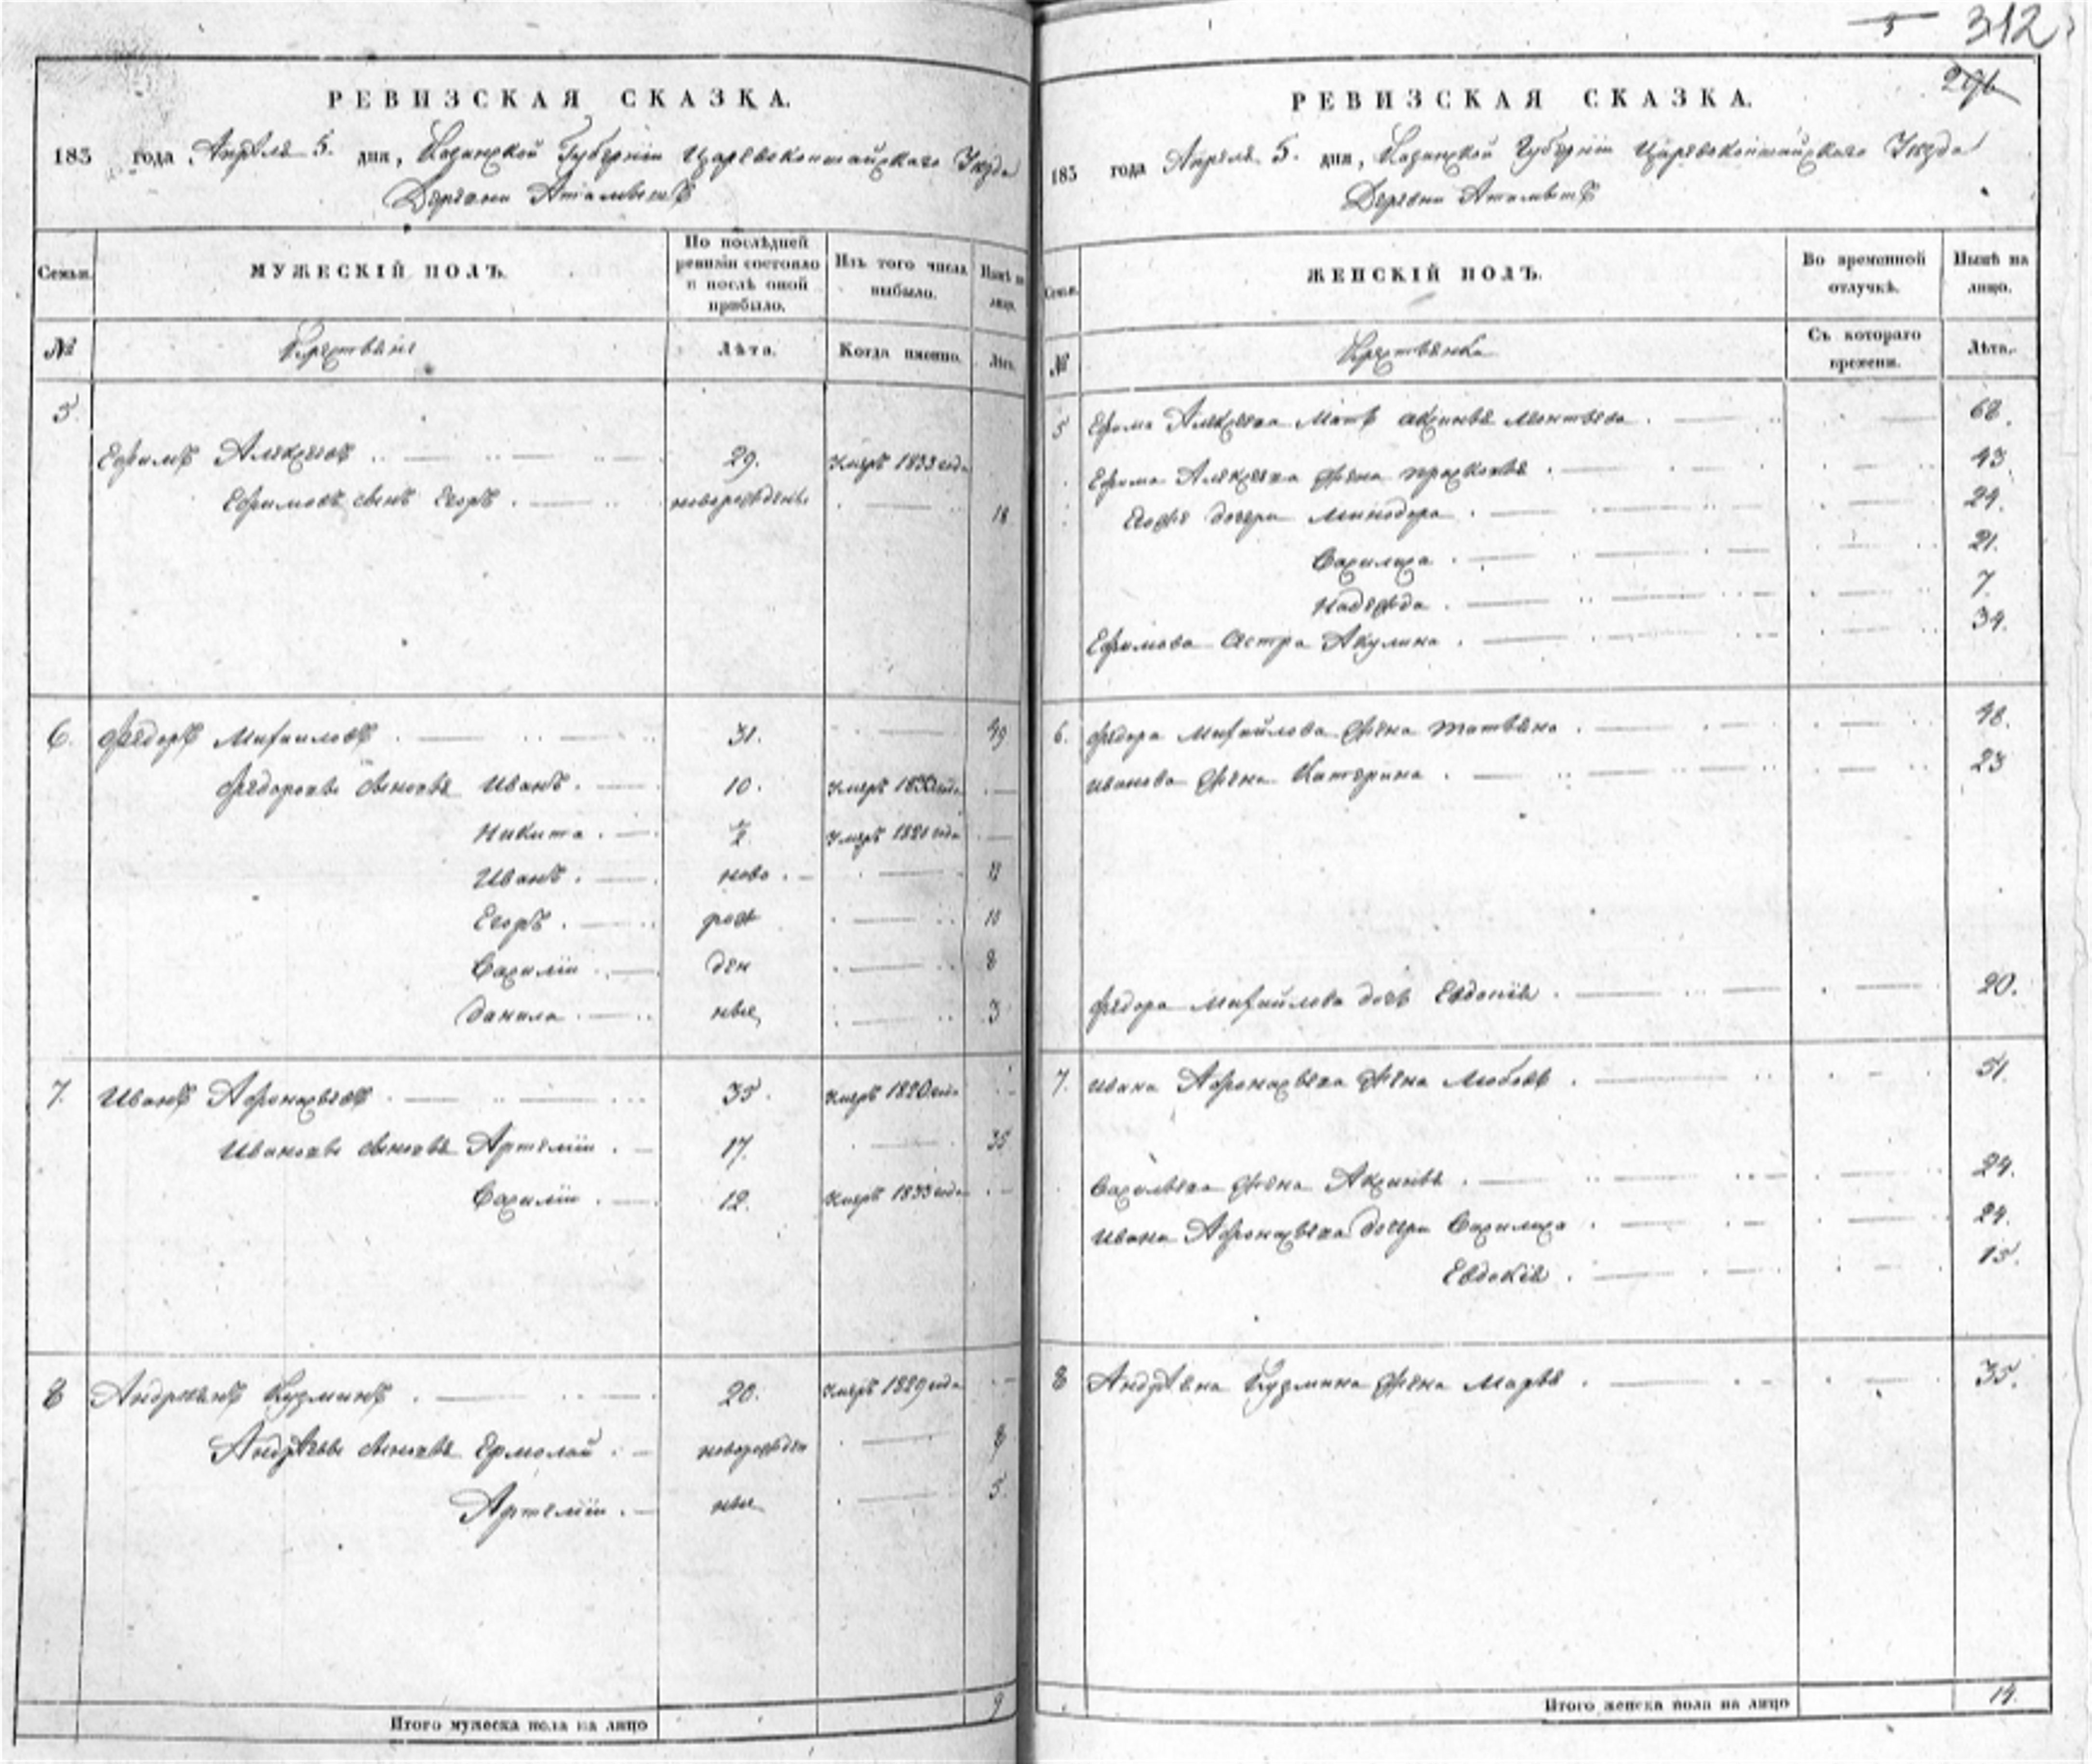 РЕВИЗСКАЯ СКАЗКА.
183 года, Апреля 5. дня, Казанской Губернии Царевококшайскаго Уезда
Деревни
Семьи. МУЖЕСКІЙ ПОЛЪ. По послѣдней ревизіи состояло и послѣ оной прибыло. Изъ того числа выбыло. Нынѣ на лицо.
№ Крестьяне Лѣта. Когда именно. Лѣта.
5
Ефимъ Алексеевъ 29. Умеръ 1833 года
Ефимовъ сынъ Егоръ новорожденъ 18
6. Федоръ Михаиловъ 31. 49
Федоровы сыновья Иванъ 10. Умеръ года
Никита Умеръ года
Иванъ ново
Егоръ рож 10
Василіи ден 8
Данила ные 3
7. Иванъ Афонасьевъ 35. Умеръ 1820 года
Ивановы сыновья Артеміи 17. 35
Василіи 12. Умеръ 1833 года
8 Андреянъ Кузминъ 20. Умеръ 1829 года
сыновья Ермолай новорожден
Артеміи ные 5.
Итого мужеска пола на лицо 9
312
РЕВИЗСКАЯ СКАЗКА.
183 года Апреля 5. дня, Казанской Губерніи Царевококшайскаго Уезда
Деревни
Семьи. ЖЕНСКІЙ ПОЛЪ. Во временной отлучкѣ. Нынѣ на лицо.
№ Крестьянка Съ котораго времени. Лѣта.
5 Ефима Алексеева Мать Аксинья 68.
Ефима Алексеева жена Прасковья 43.
Егоже дочери Минодора 24.
Василиса 21.
Надежда 7.
Ефимова сестра Акулина 34.
6. Федора Михайлова жена Татьяна 48.
Иванова жена Катерина 23
Федора Михайлова дочь Евдокія 20.
7. Ивана Афонасьева жена Любовь 51.
Васильева жена Аксинья 24.
Ивана Афонасьева дочери Василиса 24.
Евдокія 15.
8 Кузмина жена Марья 35.
Итого женска пола на лицо 14.